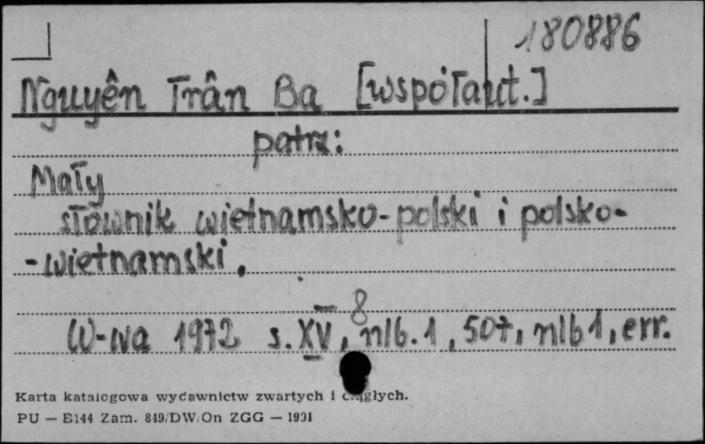 180886
Nguyên Trân Ba [współaut.]
patrz:
Mały
słownik wietnamsko-polski i polsko-
-wietnamski.
8
W-wa 1972 s. XV, nlb. 1, 507, nlb 1, err.
Karta katalogowa wydawnictw zwartych i ciągłych.
PU — E144 Zam. 819/DW/On ZGG — 1991